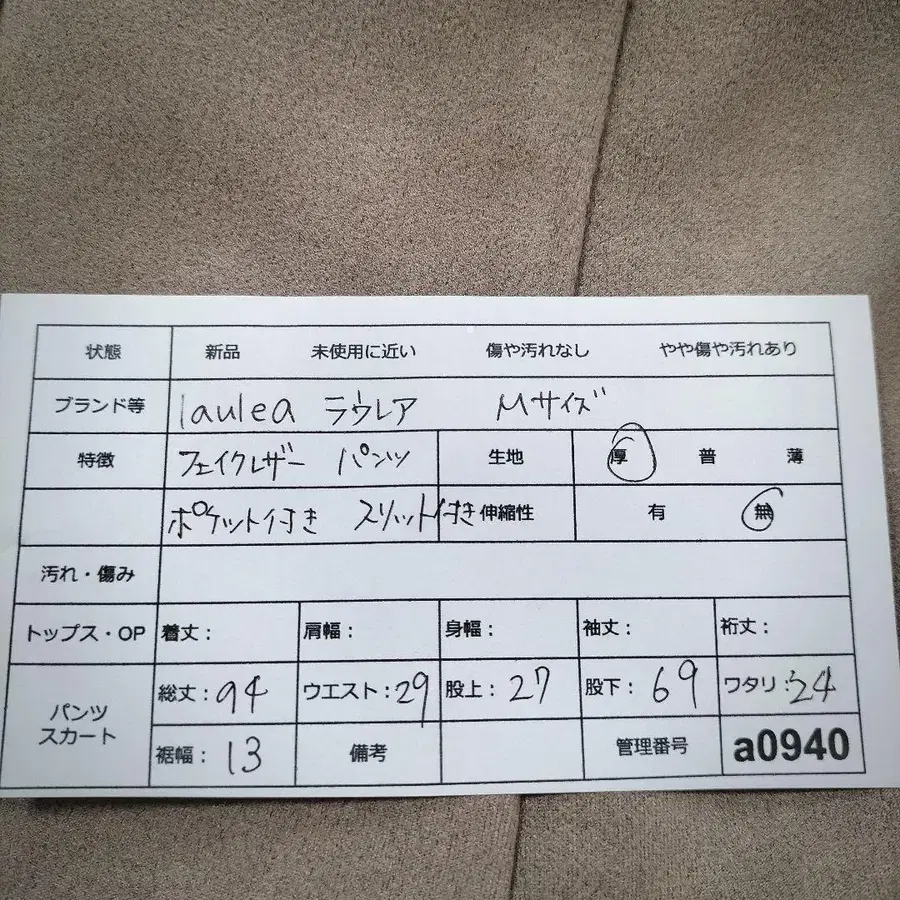 状態 新品 未使用に近い 傷や汚れなし やや傷や汚れあり
ブランド等 laulea ラウレア Mサイズ
特徴 フェイクレザー パンツ 生地 厚 普 薄
ポケット付き スリット付き 伸縮性 有 無
汚れ・傷み
トップス・OP 着丈: 肩幅: 身幅: 袖丈: 裄丈:
パンツ スカート 総丈:94 ウエスト:29 股上:27 股下:69 ワタリ:24
裾幅:13 備考 管理番号 a0940